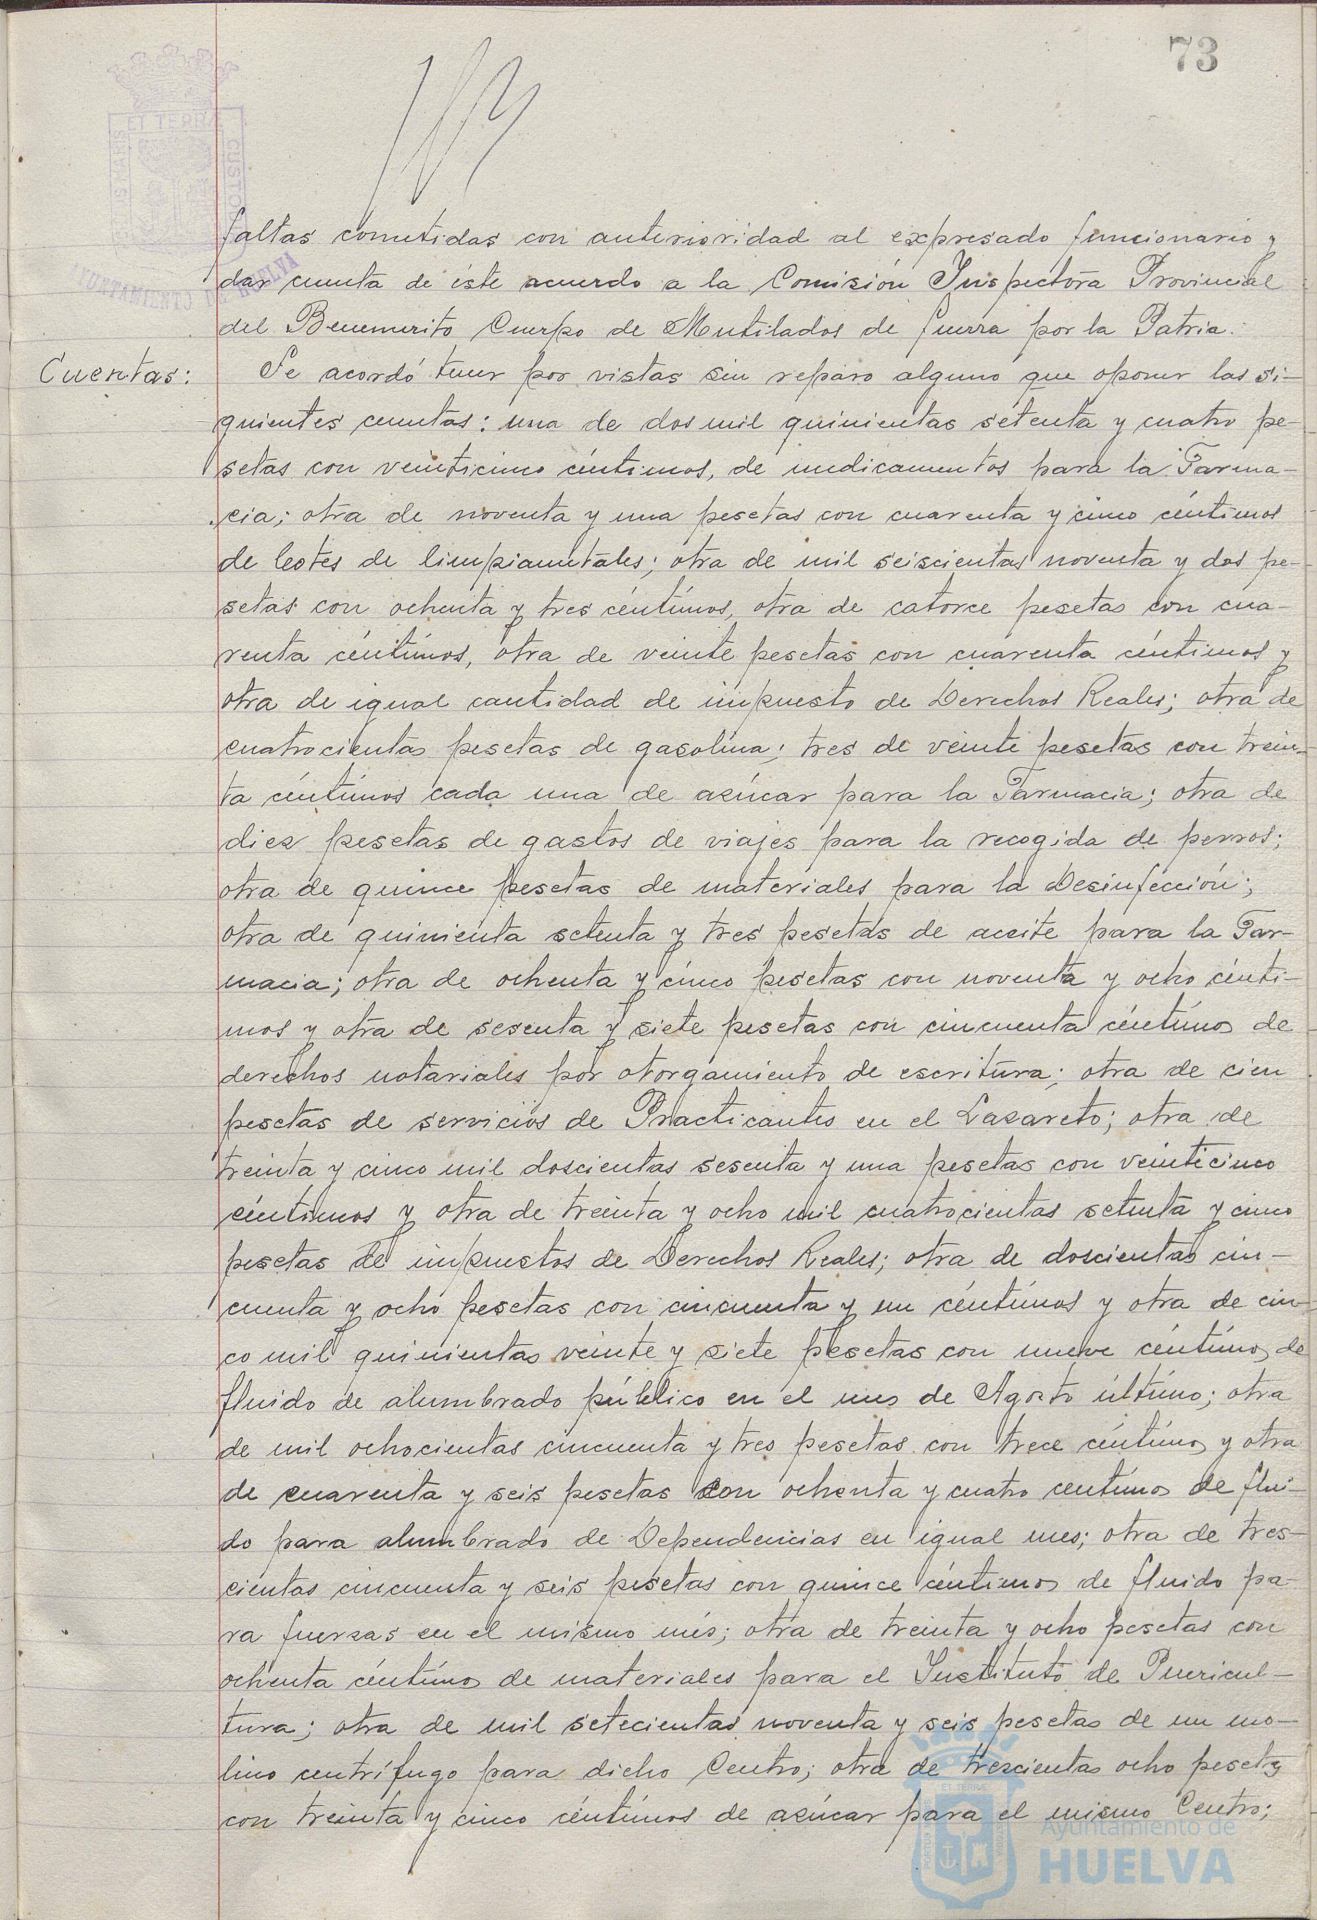 73
faltas cometidas con anterioridad al expresado funcionario y
dar cuenta de éste acuerdo a la Comisión Inspectora Provincial
del Benemerito Cuerpo de Mutilados de Guerra por la Patria.
Cuentas: Se acordó tener por vistas sin reparo alguno que oponer las si-
guientes cuentas: una de dos mil quinientas setenta y cuatro pe-
setas con veinticinco céntimos, de medicamentos para la Farma-
cia; otra de noventa y una pesetas con cuarenta y cinco céntimos
de botes de limpiametales; otra de mil seiscientas noventa y dos pe-
setas con ochenta y tres céntimos, otra de catorce pesetas con cua-
renta céntimos, otra de veinte pesetas con cuarenta céntimos y
otra de igual cantidad de impuesto de Derechos Reales; otra de
cuatrocientas pesetas de gasolina; tres de veinte pesetas con trein-
ta céntimos cada una de azúcar para la Farmacia; otra de
diez pesetas de gastos de viajes para la recogida de perros;
otra de quince pesetas de materiales para la Desinfección;
otra de quinienta setenta y tres pesetas de aceite para la Far-
macia; otra de ochenta y cinco pesetas con noventa y ocho cénti-
mos y otra de sesenta y siete pesetas con cincuenta céntimos de
derechos notariales por otorgamiento de escritura; otra de cien
pesetas de servicios de Practicantes en el Lazareto; otra de
treinta y cinco mil doscientas sesenta y una pesetas con veinticinco
céntimos y otra de treinta y ocho mil cuatrocientas setenta y cinco
pesetas de impuestos de Derechos Reales; otra de doscientas cin-
cuenta y ocho pesetas con cincuenta y un céntimos y otra de cin-
co mil quinientas veinte y siete pesetas con nueve céntimos de
fluido de alumbrado público en el mes de Agosto último; otra
de mil ochocientas cincuenta y tres pesetas con trece céntimos y otra
de cuarenta y seis pesetas con ochenta y cuatro centimos de flui-
do para alumbrado de Dependencias en igual mes; otra de tres-
cientas cincuenta y seis pesetas con quince céntimos de fluido pa-
ra fuerzas en el mismo més; otra de treinta y ocho pesetas con
ochenta céntimos de materiales para el Instituto de Puericul-
tura; otra de mil setecientas noventa y seis pesetas de un mo-
lino centrífugo para dicho Centro; otra de trescientas ocho pesetas
con treinta y cinco céntimos de azúcar para el mismo Centro;
ET TERRA
CUSTO
AYUNTAMIENTO DE HUELVA
Ayuntamiento de
HUELVA